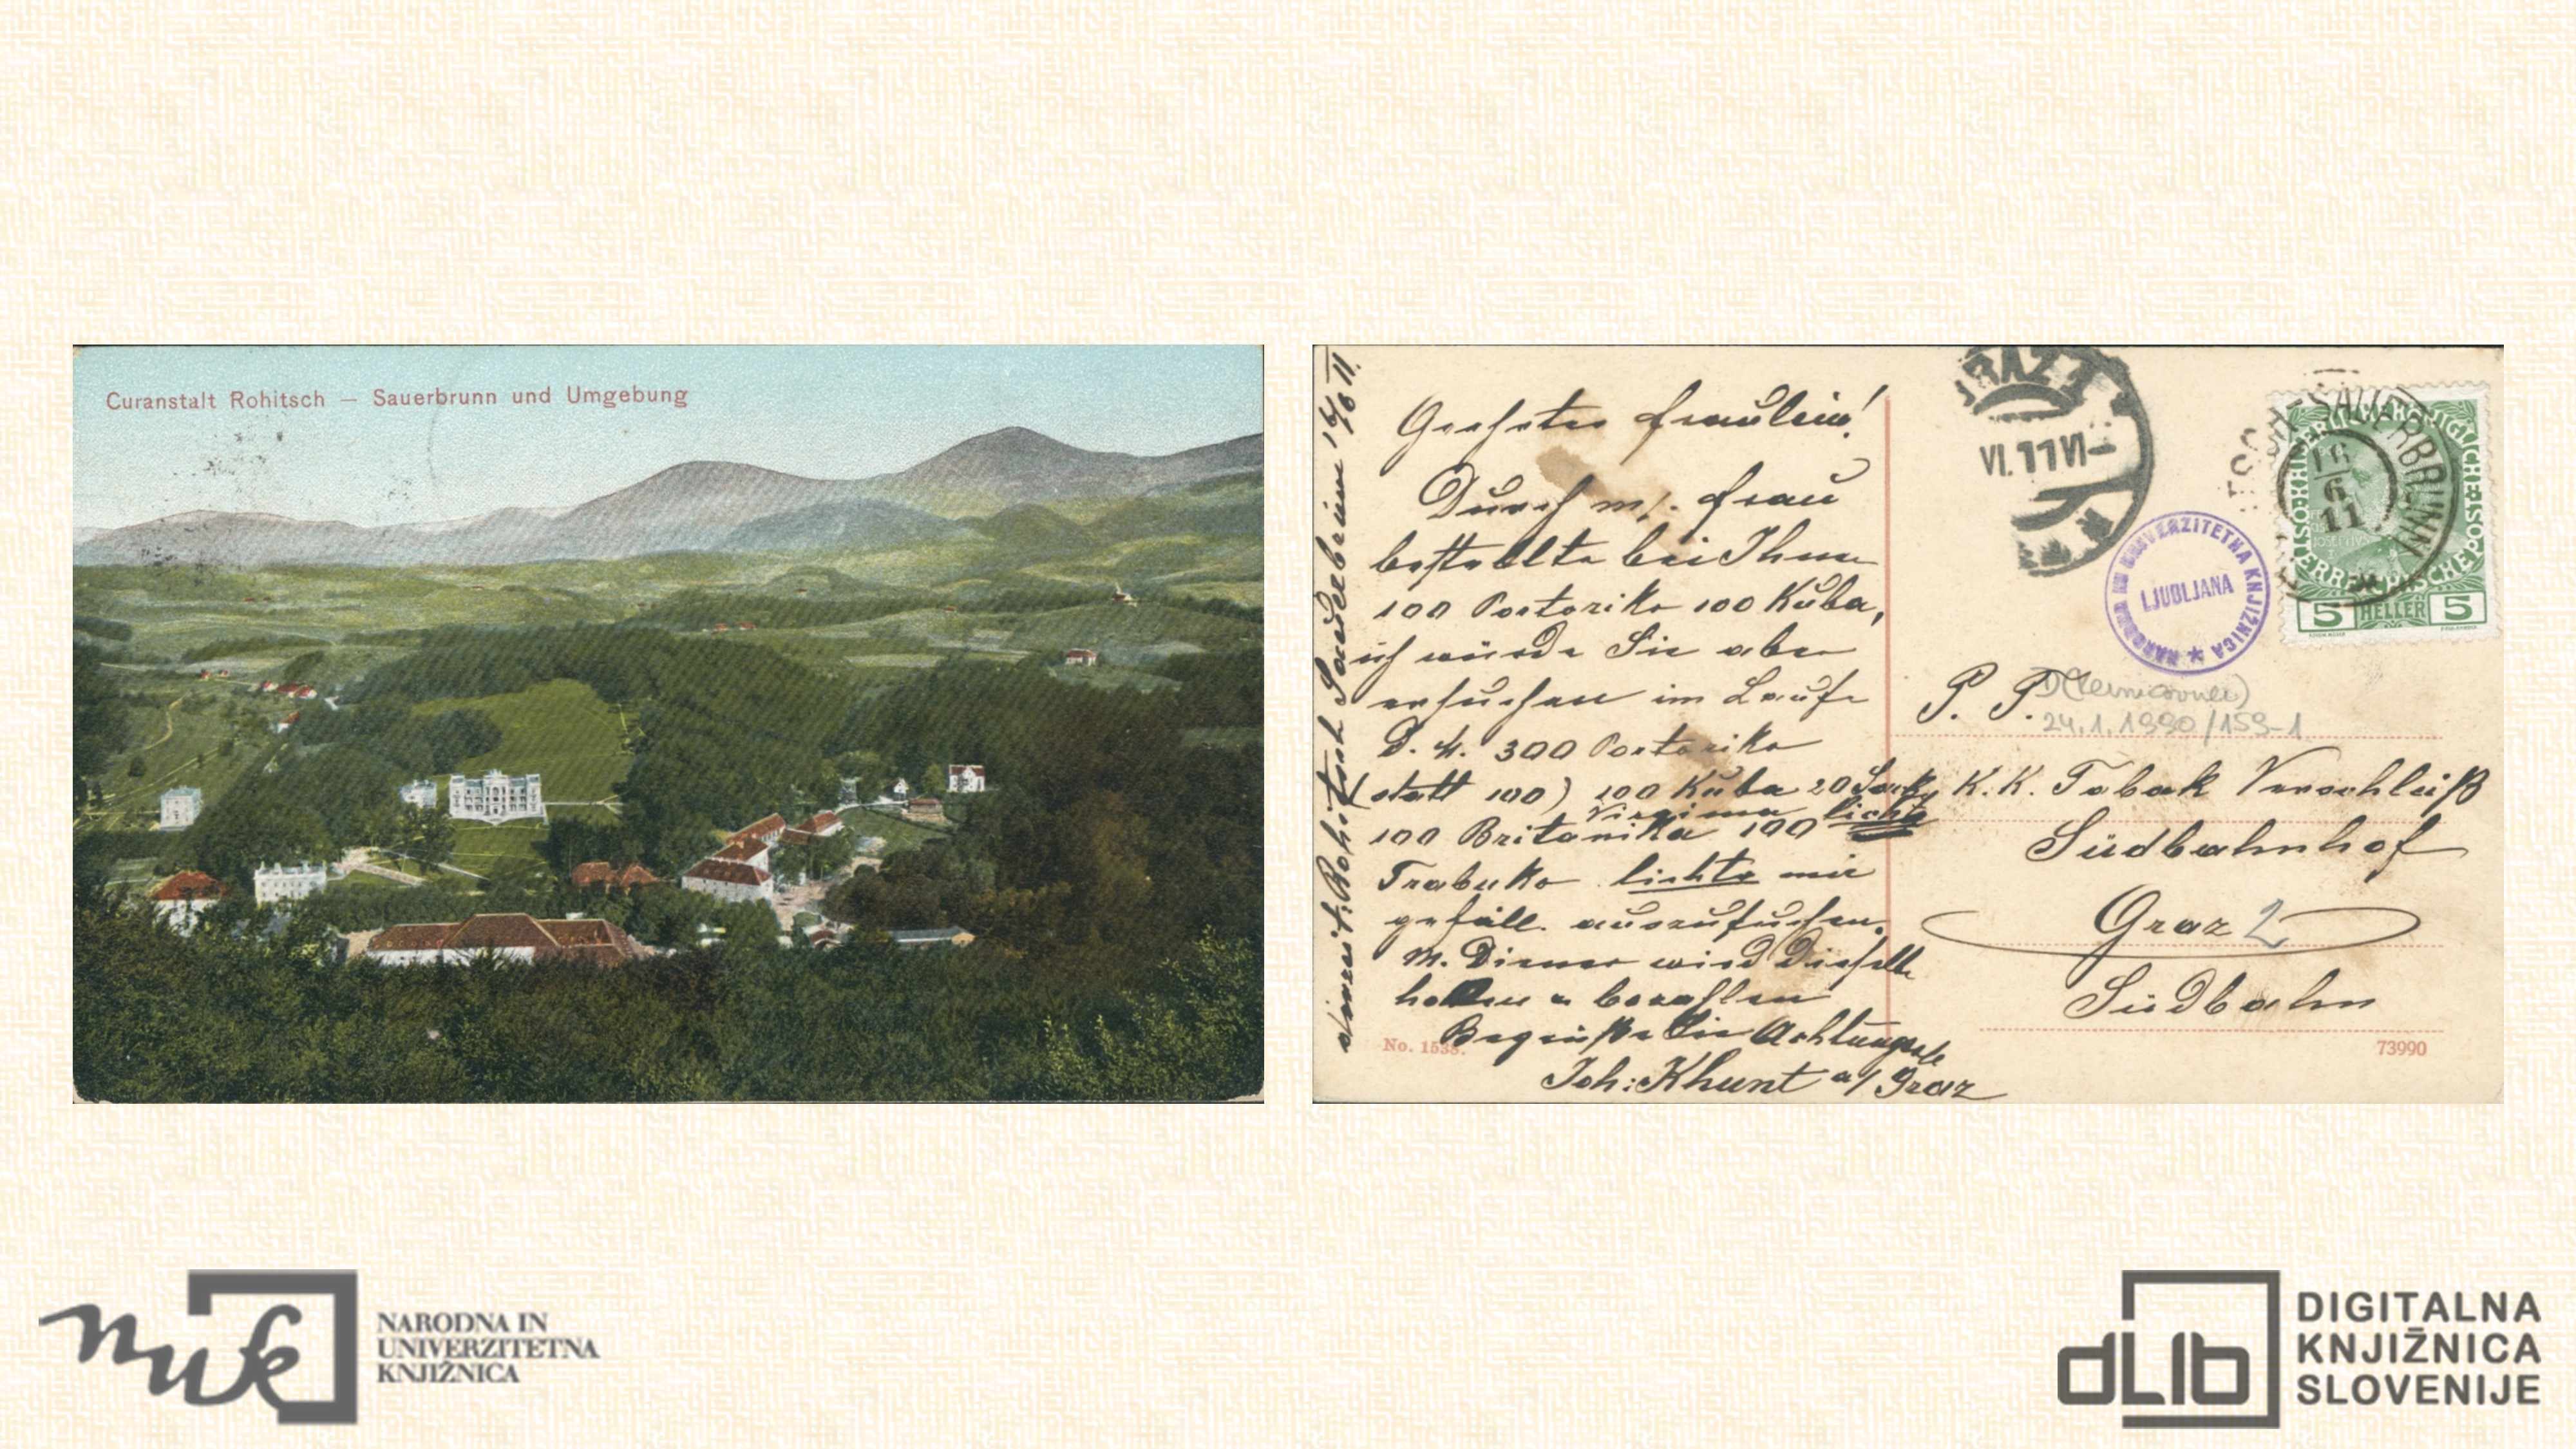 Curanstalt Rohitsch — Sauerbrunn und Umgebung
Geehrtes Fräulein!
Durch m/. Frau
bestellte bei Ihnen
100 Portoriko 100 Kuba,
ich würde Sie aber
ersuchen im Laufe
D. M. 300 Portoriko
(statt 100) 100 Kuba 20
Virginia lichte
100 Britanika 100
Trabuko lichte mir
gefäll. auszusuchen.
M. Diener wird Dieselb.
hollen u bezahlen
Begrüße Sie Achtungsvoll
Joh: Khunt a/ Graz
Rohitsch Sauerbrunn 16/6 11.
No. 1538.
GRAZ 1
VI. 11 VI
NARODNA IN UNIVERZITETNA KNJIŽNICA
LJUBLJANA
SAUERBRUNN
16
6
11
5 HELLER 5
P. T.
24.1.1990/159-1
K. K. Tabak Verschleiß
Südbahnhof
Graz 2
Südbahn
73990
nuk
NARODNA IN
UNIVERZITETNA
KNJIŽNICA
dLib
DIGITALNA
KNJIŽNICA
SLOVENIJE